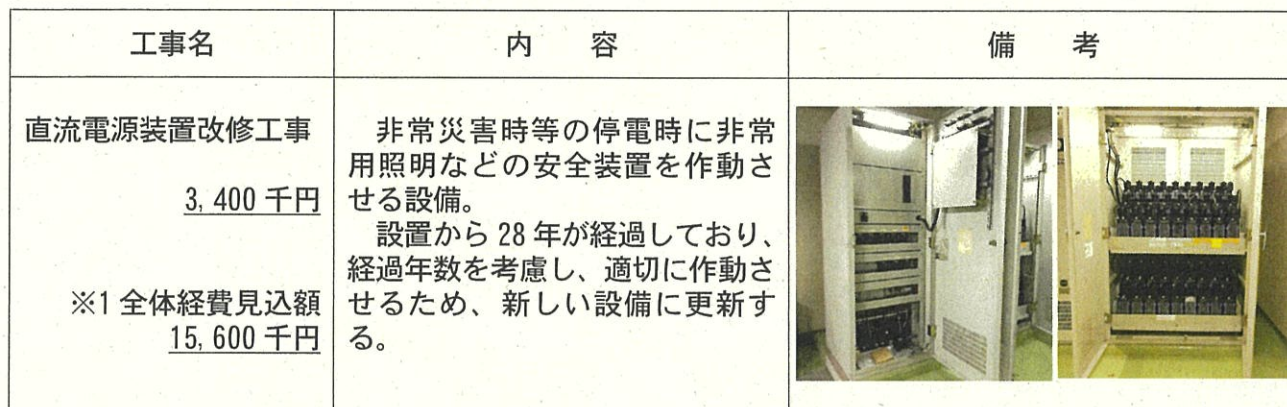 工事名
内　容
備　考
直流電源装置改修工事
3,400 千円
※1 全体経費見込額
15,600 千円
　非常災害時等の停電時に非常
用照明などの安全装置を作動さ
せる設備。
　設置から 28 年が経過しており、
経過年数を考慮し、適切に作動さ
せるため、新しい設備に更新す
る。